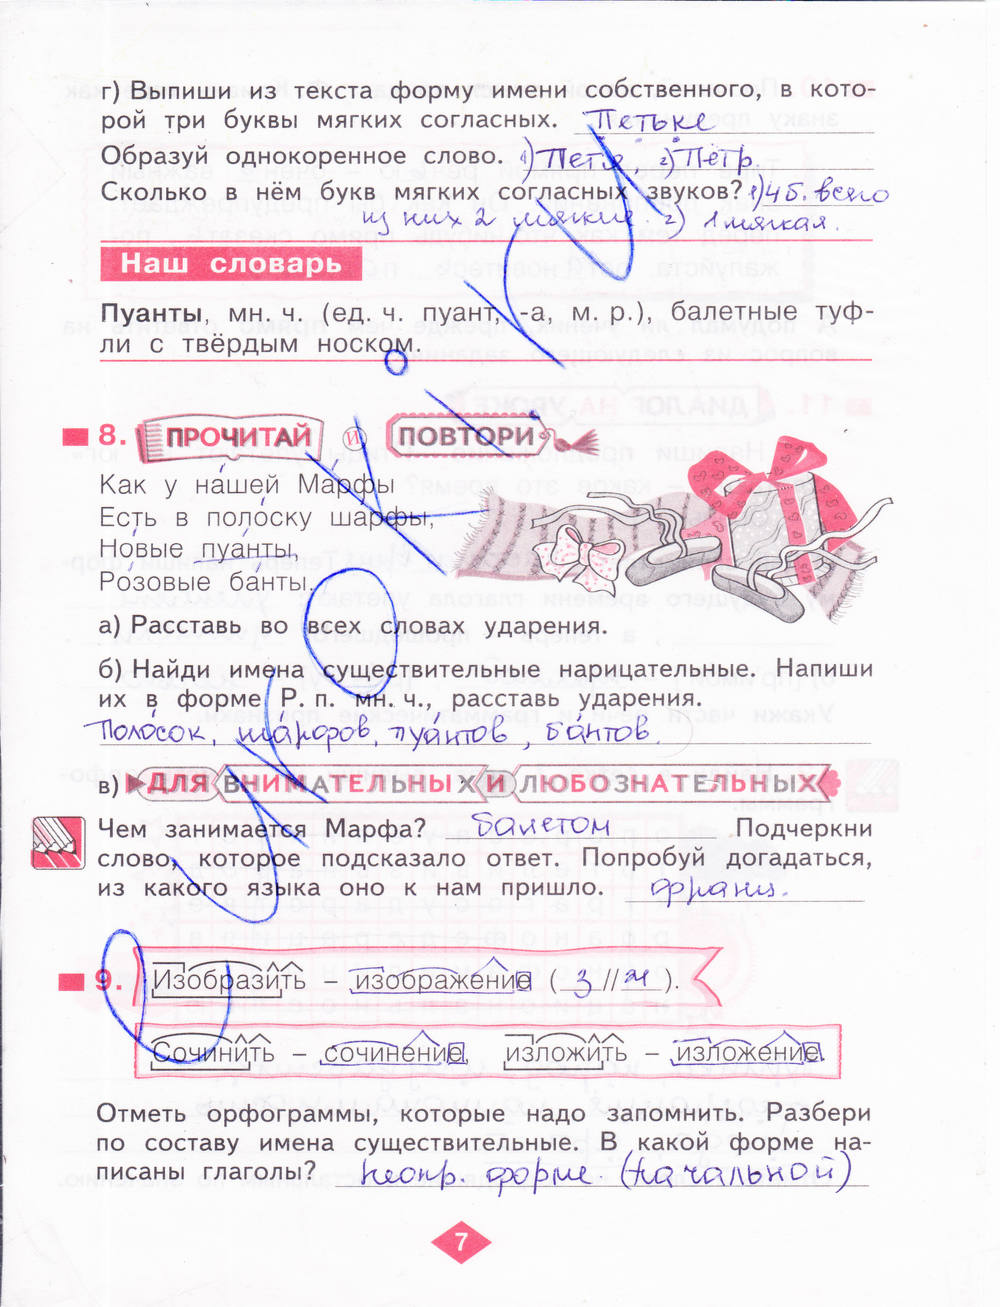 г) Выпиши из текста форму имени собственного, в кото-
рой три буквы мягких согласных. Петьке
Образуй однокоренное слово. 1) Петя 2) Пётр.
Сколько в нём букв мягких согласных звуков? 1) 4 б. всего
из них 2 мягкие. 2) 1 мягкая.
Наш словарь
Пуанты, мн. ч. (ед. ч. пуант, -а, м. р.), балетные туф-
ли с твёрдым носком.
8. ПРОЧИТАЙ И ПОВТОРИ
Как у нашей Марфы
Есть в полоску шарфы,
Новые пуанты,
Розовые банты.
а) Расставь во всех словах ударения.
б) Найди имена существительные нарицательные. Напиши
их в форме Р. п. мн. ч., расставь ударения.
Полосок, шарфов, пуантов, бантов.
в) ДЛЯ ВНИМАТЕЛЬНЫХ И ЛЮБОЗНАТЕЛЬНЫХ
Чем занимается Марфа? балетом Подчеркни
слово, которое подсказало ответ. Попробуй догадаться,
из какого языка оно к нам пришло. франц.
9. Изобразить – изображение (з // ж).
Сочинить – сочинение, изложить – изложение.
Отметь орфограммы, которые надо запомнить. Разбери
по составу имена существительные. В какой форме на-
писаны глаголы? неопр. форме. (начальной)
7